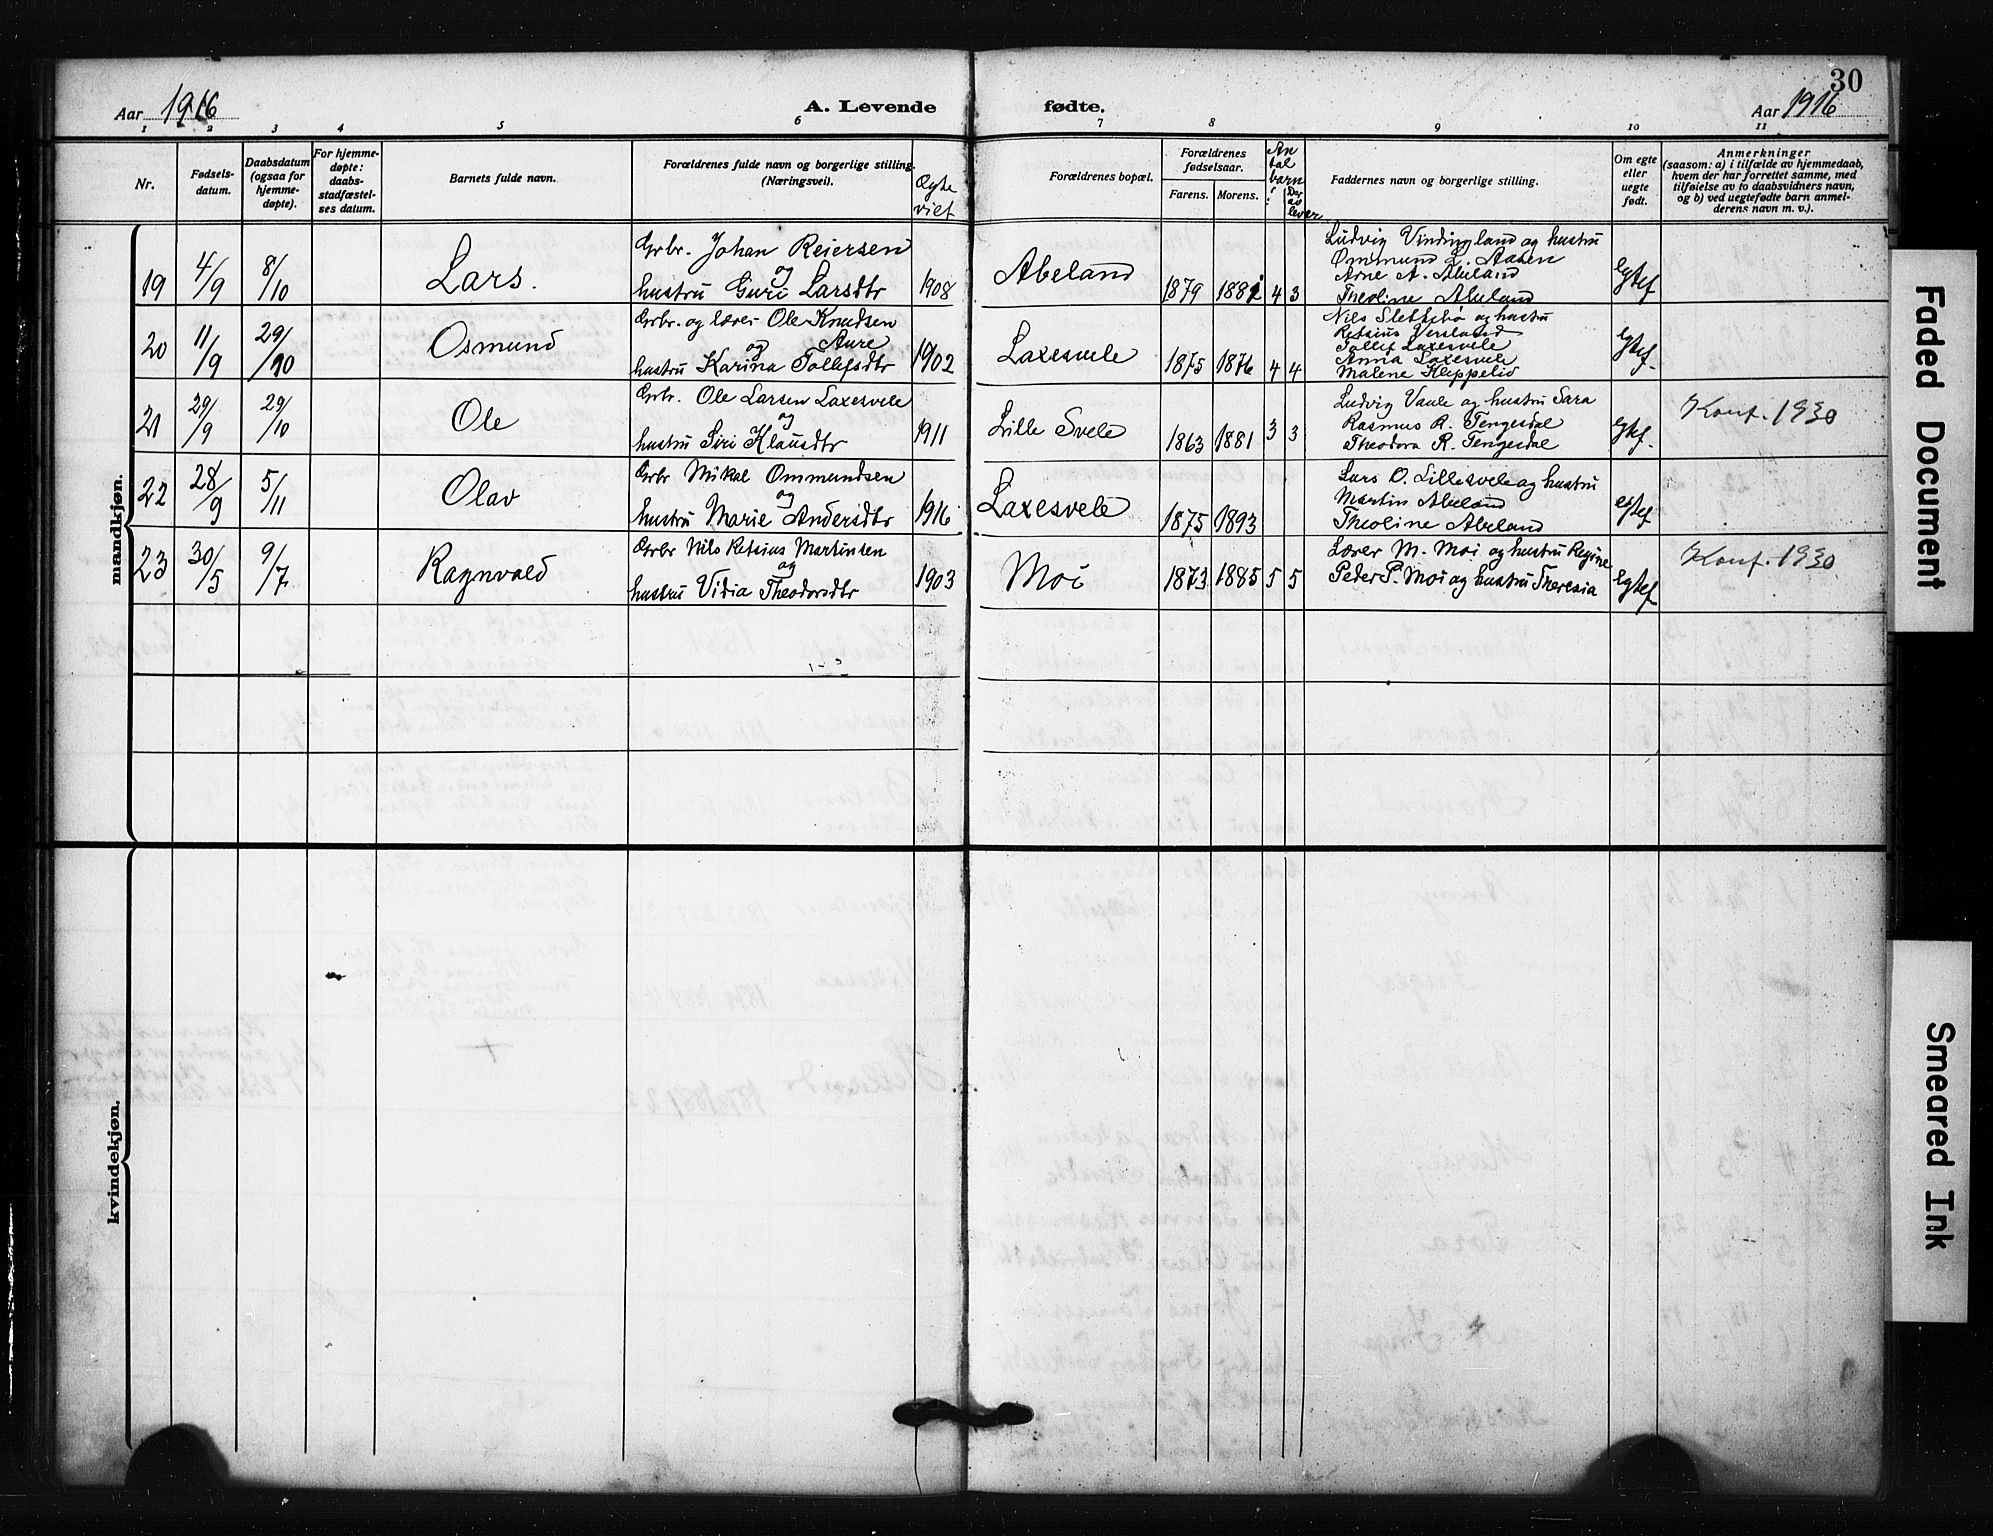 30
Aar 1916 A. Levende fødte. Aar 1916
1 2 3 4 5 6 7 8 9 10 11
Nr.
Fødsels-
datum.
Daabsdatum
(ogsaa for
hjemme-
døpte).
For hjemme-
døpte:
daabs-
stadfæstel-
ses datum.
Barnets fulde navn.
Forældrenes fulde navn og borgerlige stilling.
(Næringsvei).
Ægte
viet
Forældrenes bopæl.
Forældrenes
fødselsaar.
Farens. Morens.
An
tal
barn
Der
av
lever
Faddernes navn og borgerlige stilling.
Om egte
eller
uegte
født.
Anmerkninger
(saasom: a) i tilfælde av hjemmedaab,
hvem der har forrettet samme, med
tilføielse av to daabsvidners navn,
og b) ved uegtefødte barn anmel-
derens navn m. v.).
mandkjøn.
19 4/9 8/10 Lars.
Grbr. Johan Reiersen
og
hustru Guri Larsdtr
1908 Abeland 1879 1882 4 3
Ludvig Vindingland og hustru
Ommund L. Aasen
Arne A. Abeland
Theoline Abeland
Egtef
20 11/9 29/10 Osmund
Grbr. og lærer Ole Knudsen
og Aure
hustru Karina Tollefsdtr
1902 Laxesvele 1875 1876 4 4
Nils Slettebø og hustru
Retsius Versland
Tollef Laxesvele
Anna Laxesvele
Malene Kleppelid
Egtef.
21 29/9 29/10 Ole
Grbr. Ole Larsen Laxesvele
og
hustru Siri Klausdtr
1911 Lille Svele 1863 1881 3 3
Ludvig Vaule og hustru Sara
Rasmus R. Tengesdal
Theodora R. Tengesdal
Egtef.
Konf. 1930
22 28/9 5/11 Olav
Grbr Mikal Ommundsen
og
hustru Marie Andersdtr
1916 Laxesvele 1875 1893
Lars O. Lillesvele og hustru
Martin Abeland
Theoline Abeland
egtef
23 30/5 9/7 Ragnvald
Grbr Nils Retsius Martinsen
og
hustru Vidia Theodorsdtr
1903 Moi 1873 1885 5 5
Lærer M. Moi og hustru Regine
Peder P. Moi og hustru Theresia
Egtef
Konf. 1930
kvindekjøn.
Faded Document
Smeared Ink